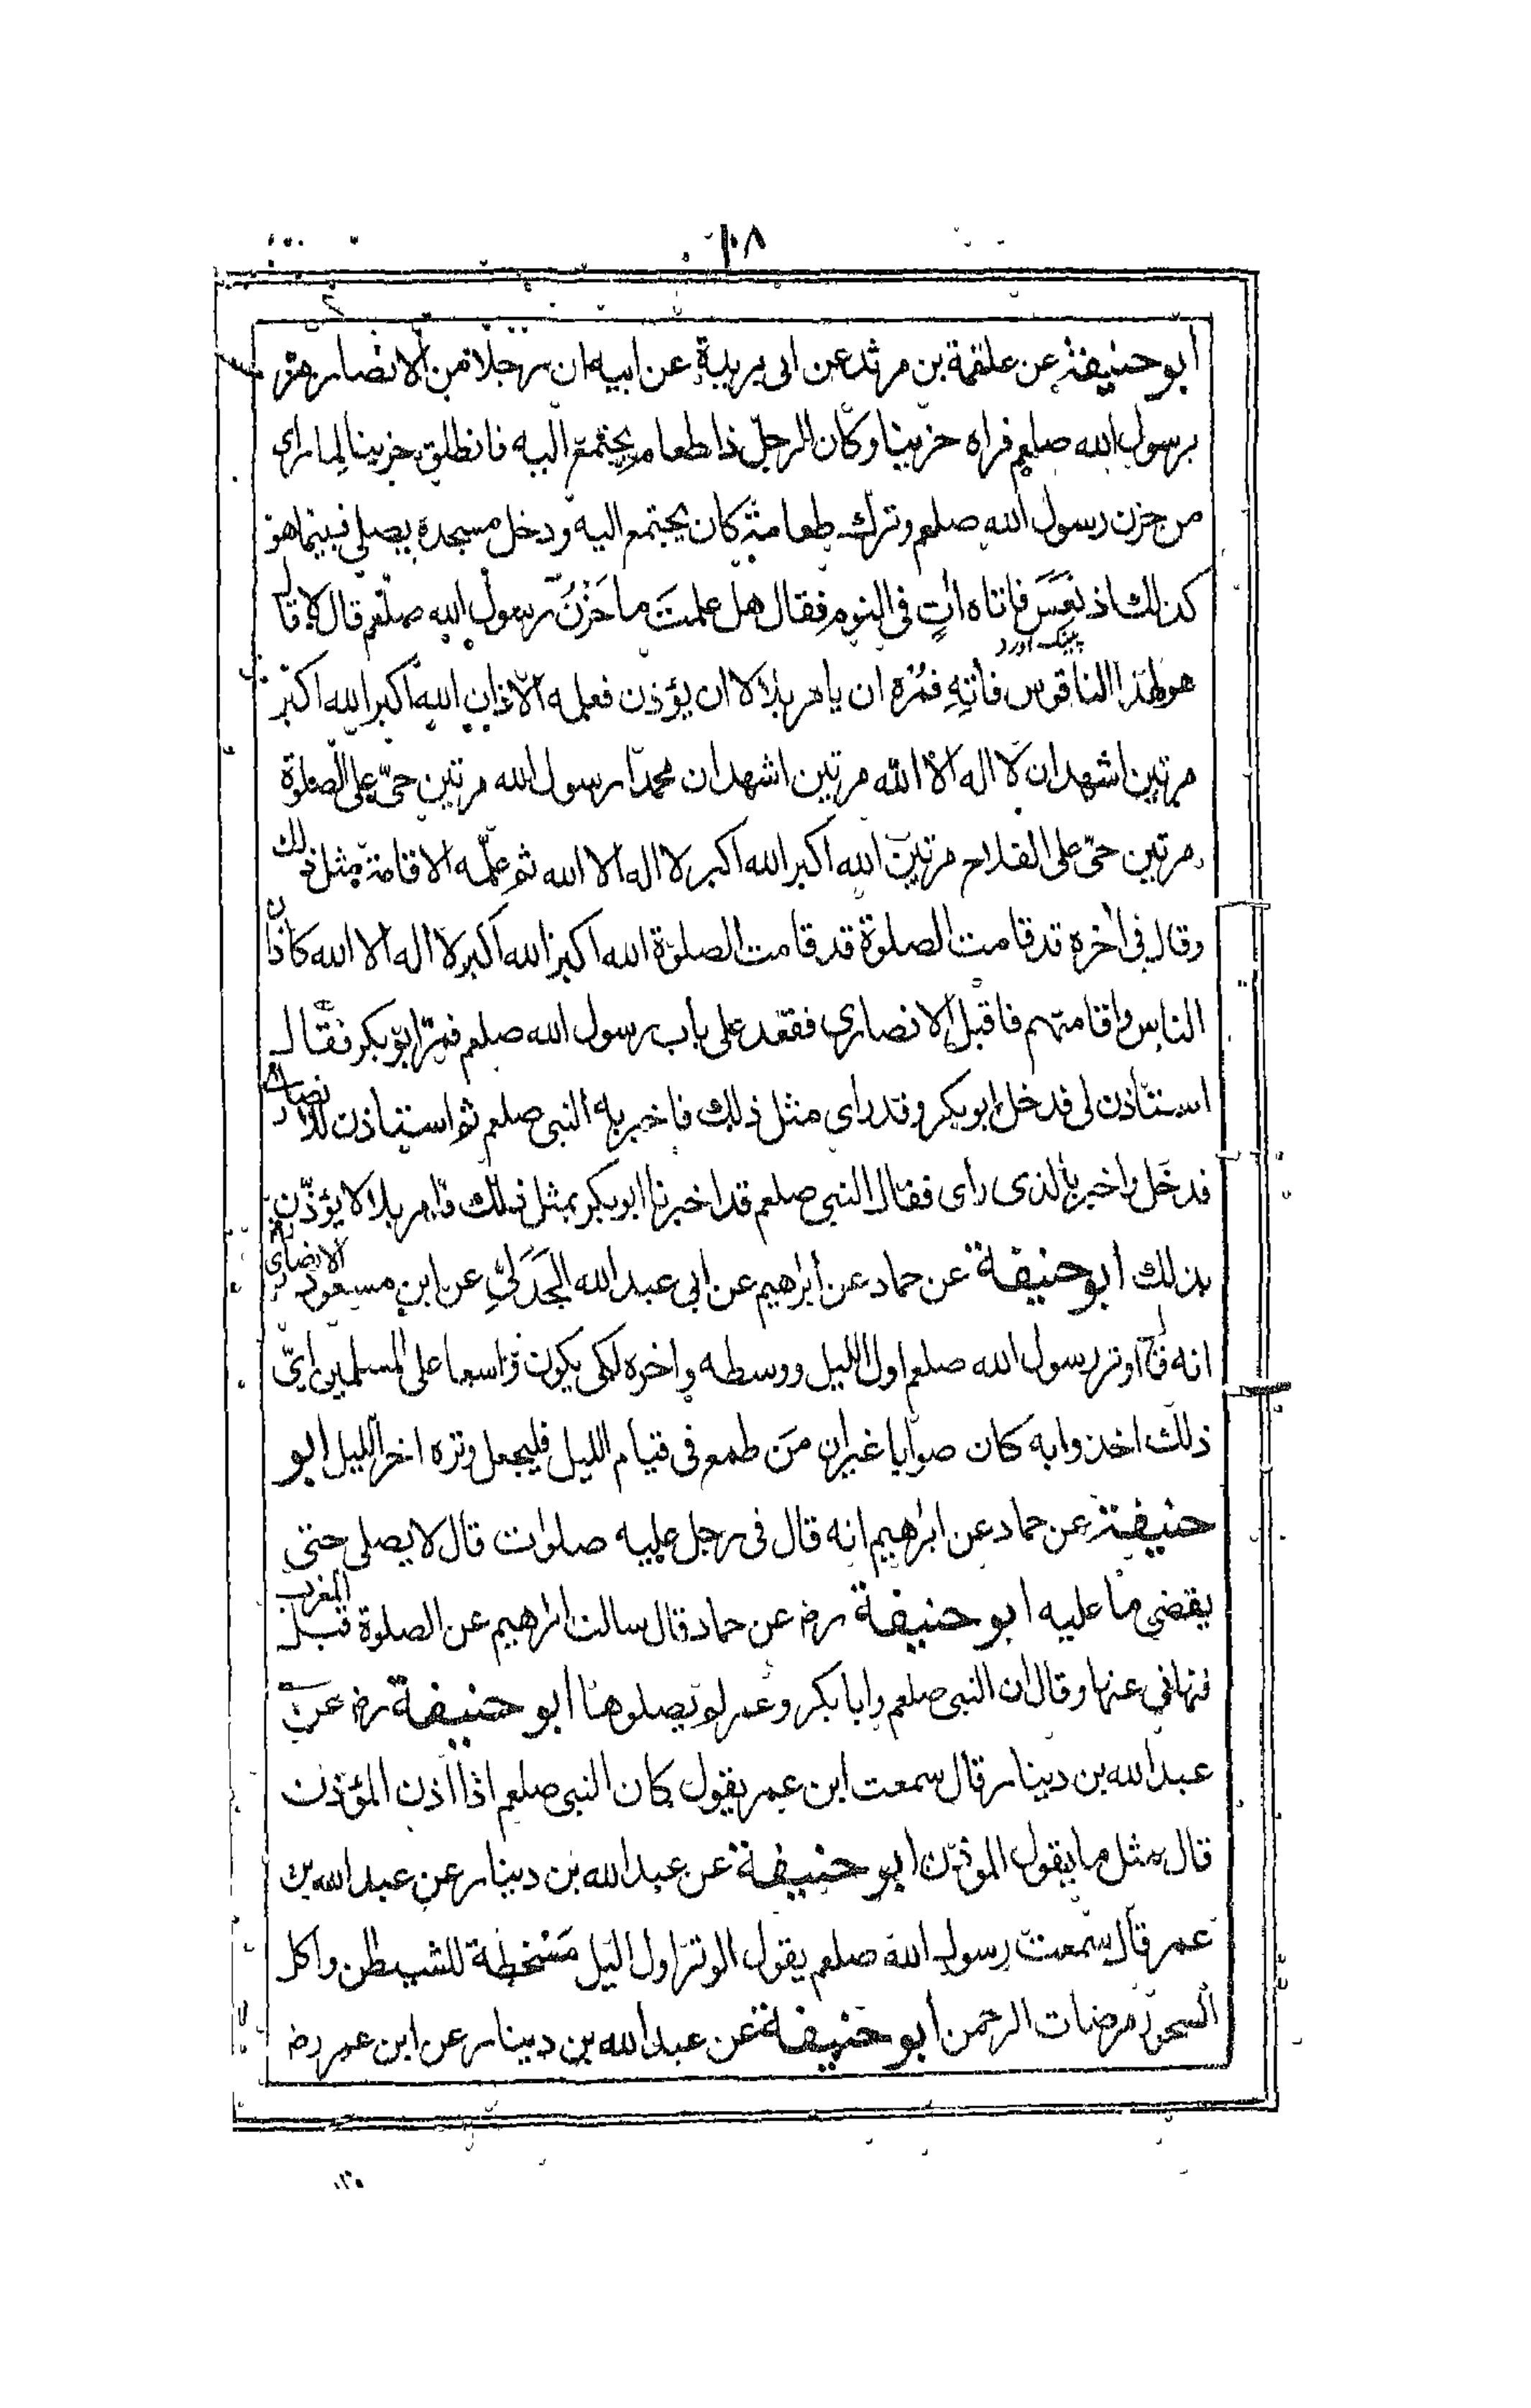 ١٠٨
ابو حنيفة عن علقمة بن مرثد عن ابى بريدة عن ابيه ان رجلا من الانصار مر
برسول الله صلعم فراه حزينا وكان الرجل ذا طعام يجتمع اليه فانطلق حزينا لما راى
من حزن رسول الله صلعم وترك طعامه كان يجتمع اليه ودخل مسجده يصلى فبينما هو
كذلك اذ نعس فاتاه اٰتٍ فى النوم فقال هل علمتَ ما حَزُنَ رسول الله صلعم قال لا قال
پینک اورد
هو لهذا الناقوس فأتِهِ فمُرْه ان يامر بلالا ان يؤذن فعلمه الاذان الله اكبر الله اكبر
مرتين اشهد ان لا اله الا الله مرتين اشهد ان محمدا رسول الله مرتين حىّ على الصلوة
مرتين حىّ على الفلاح مرتين الله اكبر الله اكبر لا اله الا الله ثم علّمه الاقامة مثل ذلك
وقال فى اخره قد قامت الصلوة قد قامت الصلوة الله اكبر الله اكبر لا اله الا الله كاذان
الناس واقامتهم فاقبل الانصارى فقعد على باب رسول الله صلعم فمرّ ابو بكر فقال
استاذن لى فدخل ابو بكر وقد راى مثل ذلك فاخبر به النبى صلعم ثم استاذن للانصارى
فدخل واخبر بالذى راى فقال النبى صلعم قد اخبرنا ابو بكر بمثل ذلك فامر بلالا يؤذّن
بذلك ابو حنيفة عن حماد عن ابراهيم عن ابى عبد الله الجَدَلىّ عن ابن مسعود الانصارى
انه قال اوتر رسول الله صلعم اول الليل ووسطه واخره لكى يكون واسعا على المسلمين اىّ
ذلك اخذوا به كان صوابا غير ان مَن طمع فى قيام الليل فليجعل وتره اخر الليل ابو
حنيفة عن حماد عن ابراهيم انه قال فى رجل عليه صلوات قال لا يصلى حتى
يقضى ما عليه ابو حنيفة رض عن حماد قال سالت ابراهيم عن الصلوة قبل المغرب
فنهانى عنها وقال ان النبى صلعم وابا بكر وعمر لم يصلوها ابو حنيفة رض عن
عبد الله بن دينار قال سمعت ابن عمر يقول كان النبى صلعم اذا اذن المؤذن
قال مثل ما يقول الموذن ابو حنيفة عن عبد الله بن دينار عن عبد الله بن
عمر قال سمعت رسول الله صلعم يقول الوتر اول اليل مَسْخطة للشيطٰن واكل
السحور مرضات الرحمن ابو حنيفة عن عبد الله بن دينار عن ابن عمر رض